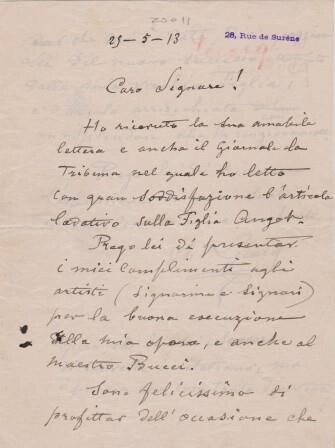 25011
25-5-13
28, Rue de Surène
Caro Signore!
Ho ricevuto la sua amabile
lettera e anche il Giornale da
Tribuna nel quale ho letto
con gran soddisfazione l'articolo
lodativo sulla Figlia Angot.
Prego lei di presentar
i miei complimenti agli
artisti (Signorine e Signori)
per la buona esecuzione
della mia opera, e anche al
maestro Bucci.
Sono felicissimo di
profittar dell'occasione che